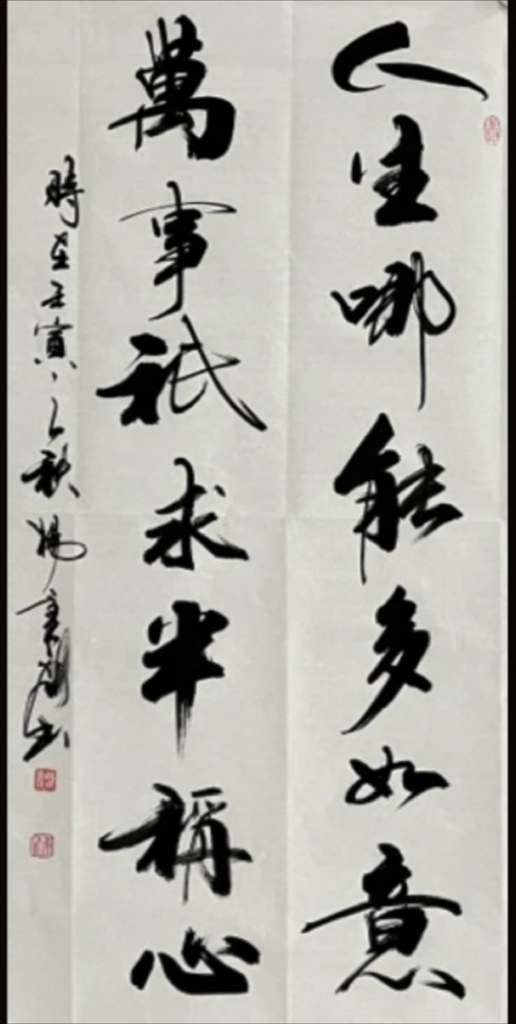 人生哪能多如意
萬事祇求半稱心
時在壬寅之秋楊書